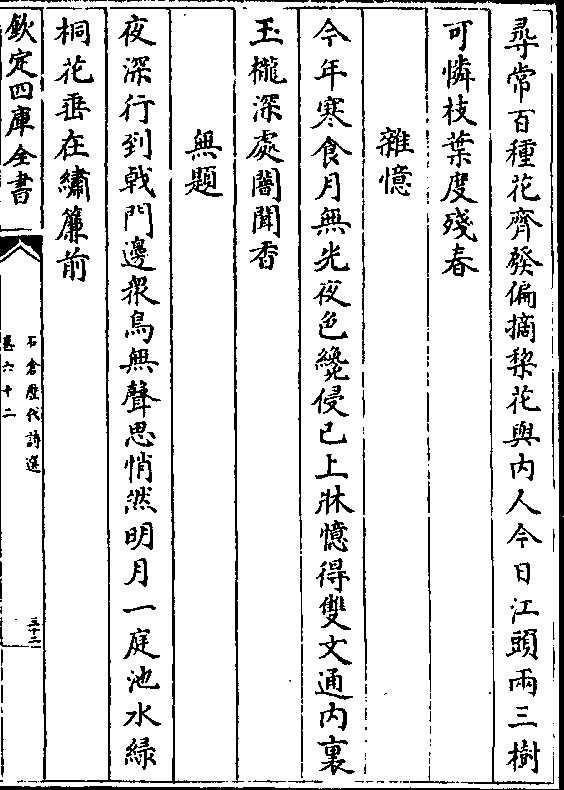 尋常百種花齊發偏摘棃花與内人今日江頭兩三樹
可憐枝葉度殘春
雜憶
今年寒食月無光夜色纔侵已上牀憶得雙文通内裏
玉櫳深處闇聞香
無題
夜深行到戟門邊衆鳥無聲思悄然明月一庭池水緑
桐花垂在繡簾前
欽定四庫全書
石倉歷代詩選
卷六十二
三十二